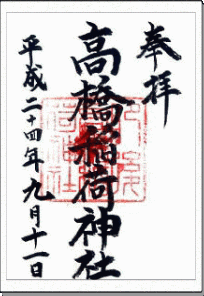 奉拝
高橋稲荷神社
平成二十四年九月十一日